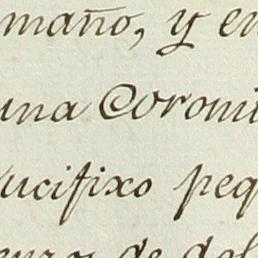 maño, y en
una Coroni
ucifixo peq
de dol